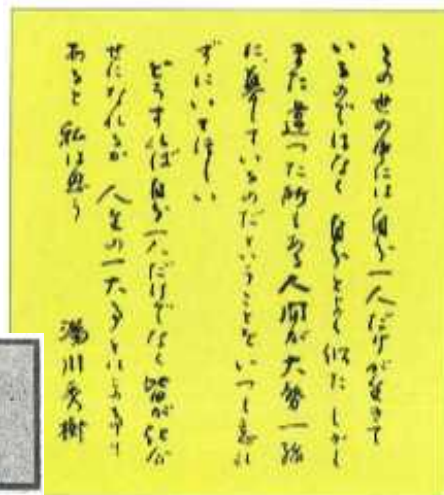 この世の中には 自分一人だけが生きて
いるのではなく 自分とよく似た しかし
また 違った所もある人間が大勢一緒
に 暮しているのだということを いつも忘れ
ずにいてほしい
どうすれば 自分一人だけでなく 皆が仕合
せになれるか 人生の一大事とはこの
あると 私は思う
湯川秀樹